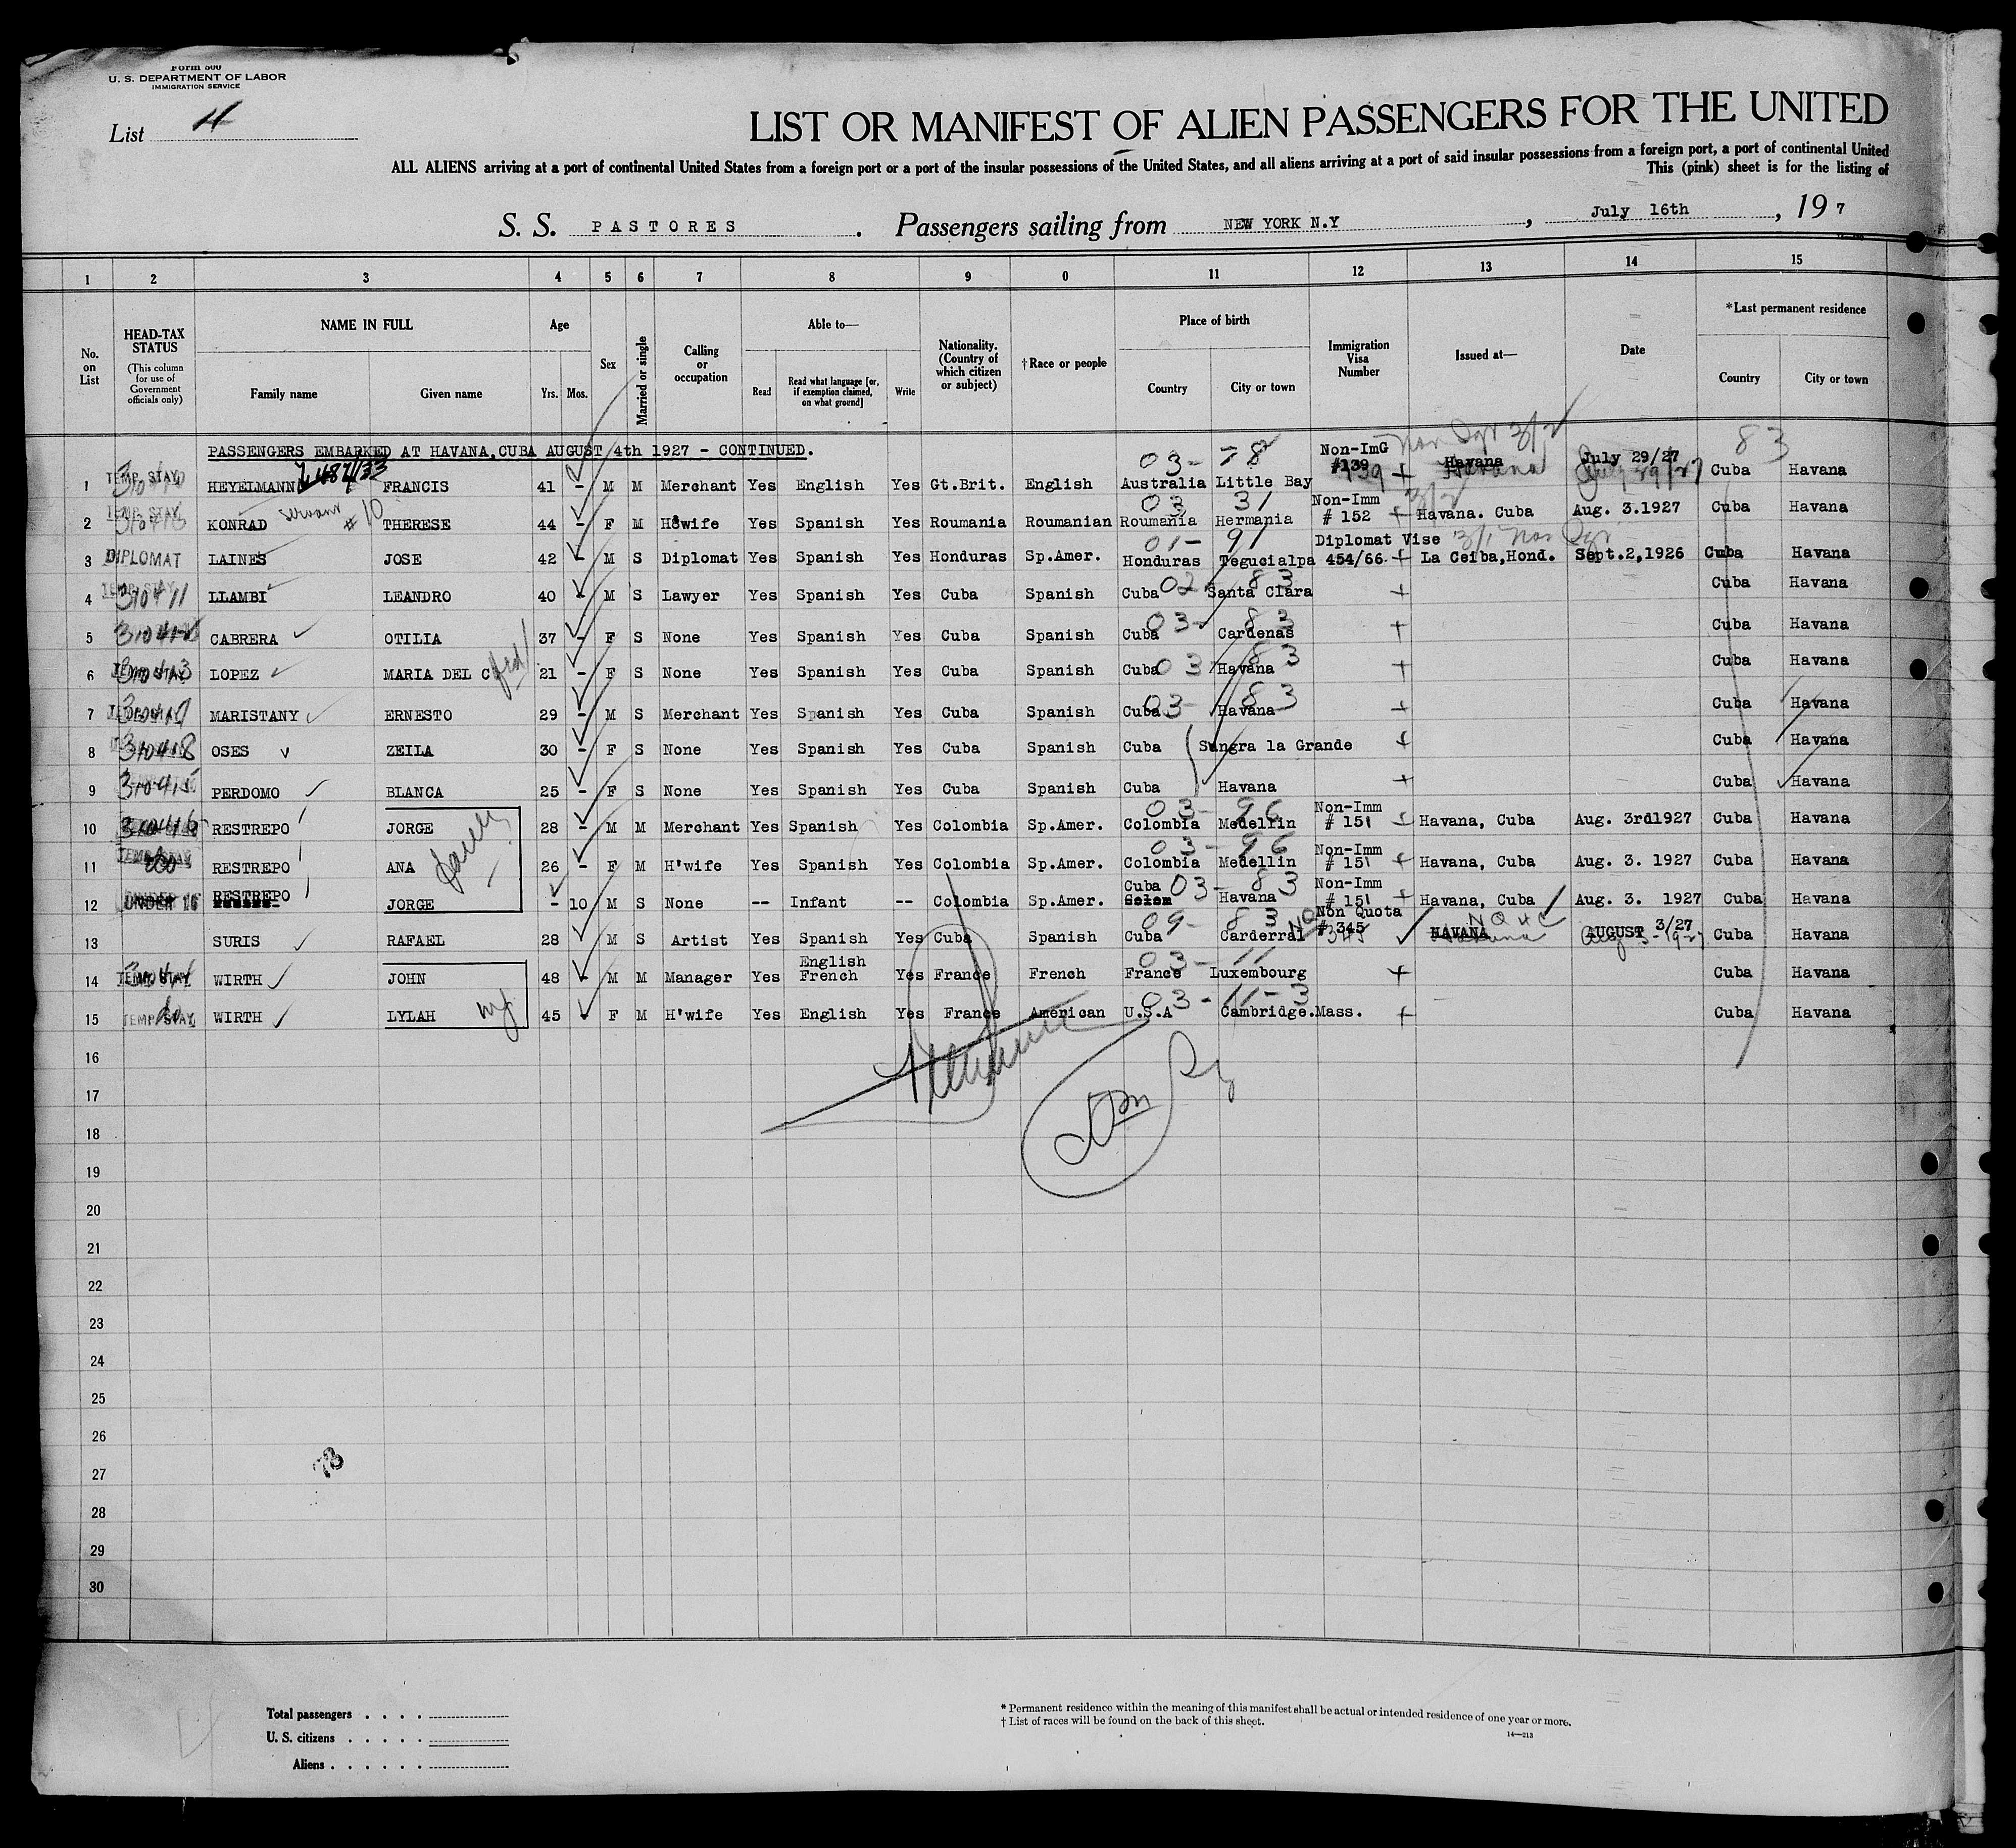 Form 500
U. S. DEPARTMENT OF LABOR
IMMIGRATION SERVICE
List 4
LIST OR MANIFEST OF ALIEN PASSENGERS FOR THE UNITED
ALL ALIENS arriving at a port of continental United States from a foreign port or a port of the insular possessions of the United States, and all aliens arriving at a port of said insular possessions from a foreign port, a port of continental United
This (pink) sheet is for the listing of
S. S. PASTORES. Passengers sailing from NEW YORK N.Y, July 16th, 19 7
1 2 3 4 5 6 7 8 9 0 11 12 13 14 15
No. on List
HEAD-TAX STATUS (This column for use of Government officials only)
NAME IN FULL Family name Given name
Age Yrs. Mos.
Sex
Married or single
Calling or occupation
Able to— Read Read what language [or, if exemption claimed, on what ground] Write
Nationality. (Country of which citizen or subject)
†Race or people
Place of birth Country City or town
Immigration Visa Number
Issued at—
Date
*Last permanent residence Country City or town
PASSENGERS EMBARKED AT HAVANA,CUBA AUGUST 4th 1927 - CONTINUED. 03- 78 Non-ImG #139 Havana July 29/27 83
1 TEMP. STAY HEYELMANN FRANCIS 41 - M M Merchant Yes English Yes Gt.Brit. English Australia Little Bay 139 + Havana July 29/27 Cuba Havana
03 31 Non-Imm 3/2
2 TEMP. STAY KONRAD servant #10 THERESE 44 - F M H8wife Yes Spanish Yes Roumania Roumanian Roumania Hermania # 152 + Havana. Cuba Aug. 3.1927 Cuba Havana
01- 91 Diplomat Vise 3/1
3 DIPLOMAT LAINES JOSE 42 - M S Diplomat Yes Spanish Yes Honduras Sp.Amer. Honduras Tegucialpa 454/66 + La Ceiba,Hond. Sept.2,1926 Cuba Havana
4 TEMP. STAY 310411 LLAMBI LEANDRO 40 - M S Lawyer Yes Spanish Yes Cuba Spanish Cuba 02- 83 Santa Clara + Cuba Havana
5 CABRERA OTILIA 37 - F S None Yes Spanish Yes Cuba Spanish Cuba 03- 83 Cardenas + Cuba Havana
6 310413 LOPEZ MARIA DEL C 21 - F S None Yes Spanish Yes Cuba Spanish Cuba 03 83 Havana + Cuba Havana
7 310417 MARISTANY ERNESTO 29 - M S Merchant Yes Spanish Yes Cuba Spanish Cuba 03- 83 Havana + Cuba Havana
8 310418 OSES ZEILA 30 - F S None Yes Spanish Yes Cuba Spanish Cuba Sangra la Grande + Cuba Havana
9 310415 PERDOMO BLANCA 25 - F S None Yes Spanish Yes Cuba Spanish Cuba Havana + Cuba Havana
03- 96 Non-Imm
10 310416 RESTREPO JORGE 28 - M M Merchant Yes Spanish Yes Colombia Sp.Amer. Colombia Medellin # 151 + Havana, Cuba Aug. 3rd1927 Cuba Havana
family 03- 96 Non-Imm
11 TEMP. STAY RESTREPO ANA 26 - F M H'wife Yes Spanish Yes Colombia Sp.Amer. Colombia Medellin # 151 + Havana, Cuba Aug. 3. 1927 Cuba Havana
Cuba 03- 83 Non-Imm
12 UNDER 16 RESTREPO JORGE - 10 M S None -- Infant -- Colombia Sp.Amer. Havana # 151 + Havana, Cuba Aug. 3. 1927 Cuba Havana
09- 83 Non Quota # 345
13 SURIS RAFAEL 28 M S Artist Yes Spanish Yes Cuba Spanish Cuba Carderral 345 HAVANA AUGUST 3/27 Cuba Havana
03- 11
14 TEMP. STAY WIRTH JOHN 48 - M M Manager Yes English French Yes France French France Luxembourg + Cuba Havana
03-11-3
15 TEMP. STAY WIRTH LYLAH 45 F M H'wife Yes English Yes France American U.S.A Cambridge.Mass. + Cuba Havana
16
17
18
19
20
21
22
23
24
25
26
27
28
29
30
Total passengers
U. S. citizens
Aliens
* Permanent residence within the meaning of this manifest shall be actual or intended residence of one year or more.
† List of races will be found on the back of this sheet.
14—213